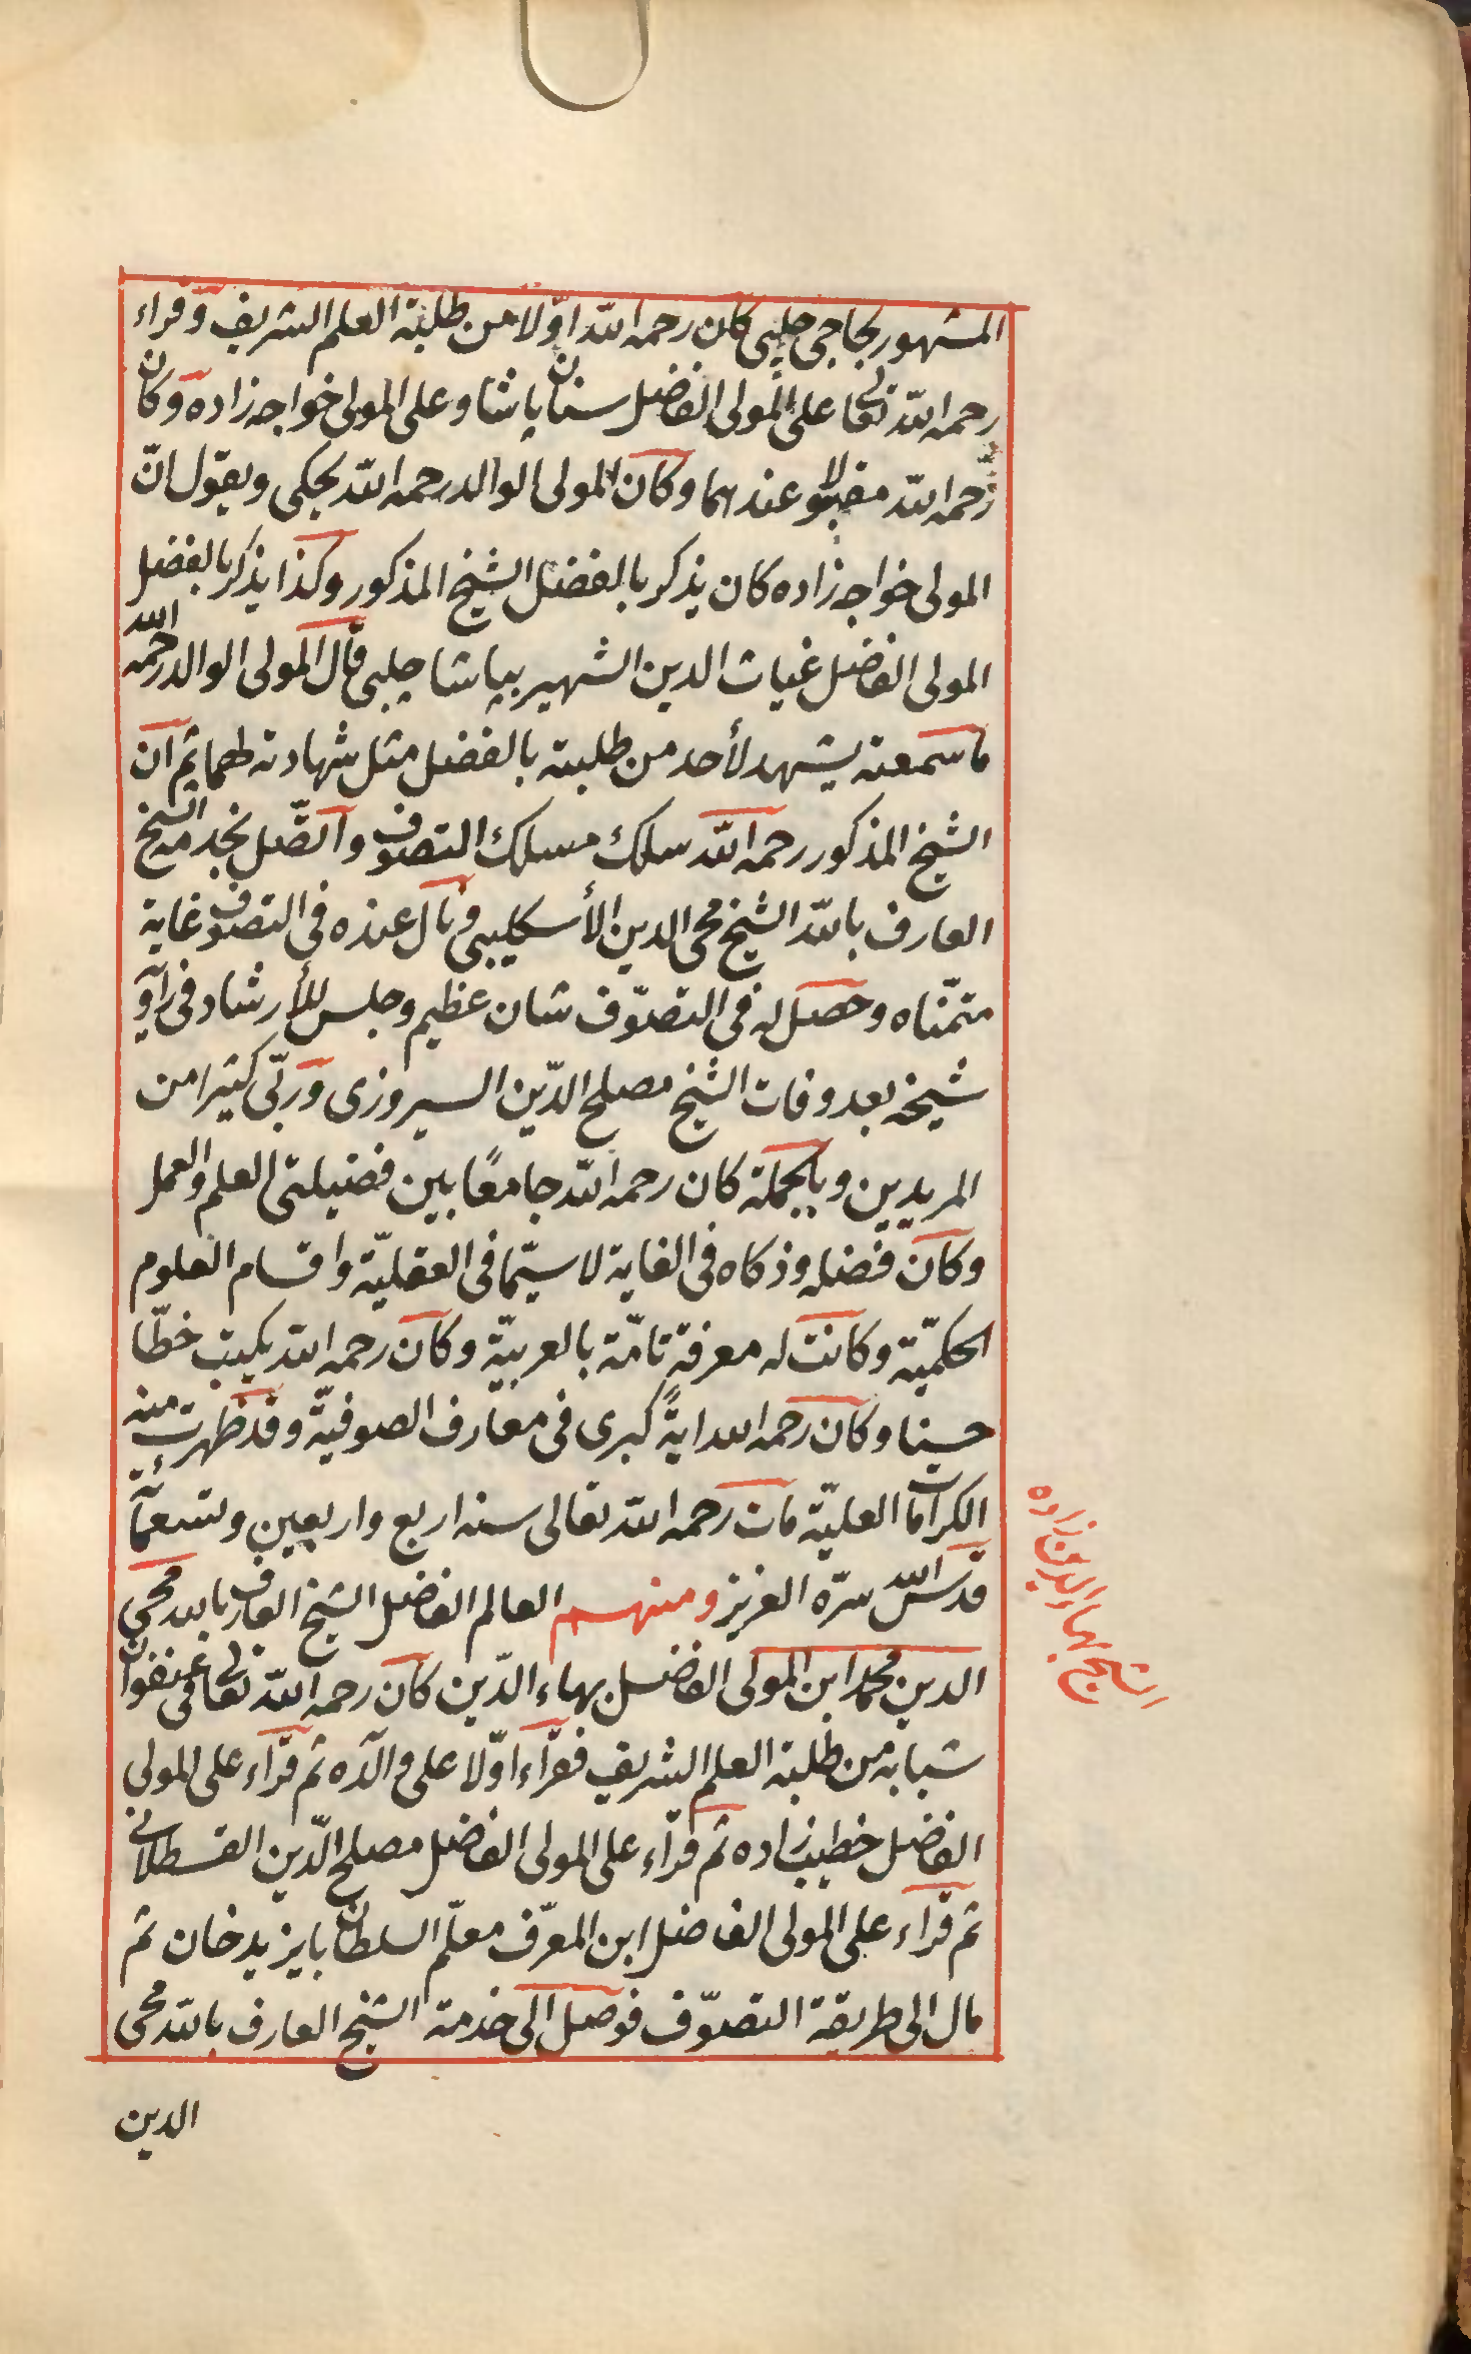 المشهور بحاجى چلبى كان رحمه الله اوّلا من طلبة العلم الشريف وقراء
رحمه الله تعالى على المولى الفاضل سنان پاشا وعلى المولى خواجه زاده وكان
رحمه الله مقبولا عندهما وكان المولى الوالد رحمه الله يحكى ويقول انّ
المولى خواجه زاده كان يذكر بالفضل الشيخ المذكور وكذا يذكر بالفضل
المولى الفاضل غياث الدين الشهير بپاشا چلبى قال المولى الوالد رحمه الله
ما سمعته يشهد لأحد من طلبته بالفضل مثل شهادته لهما ثم ان
الشيخ المذكور رحمه الله سلك مسلك التصوف واتّصل بخدمة الشيخ
العارف بالله الشيخ محى الدين الأسكليبى ونال عنده فى التصوف غاية
متمنّاه وحصل له فى التصوّف شان عظيم وجلس للأرشاد فى زاوية
شيخه بعد وفات الشيخ مصلح الدّين السيروزى وربّى كثيرا من
المريدين وبالجملة كان رحمه الله جامعًا بين فضيلتى العلم والعمل
وكان فضله وذكاه فى الغاية لا سيّما فى العقليّة واقسام العلوم
الحكميّة وكانت له معرفة تامّة بالعربيّة وكان رحمه الله يكتب خطّا
حسينا وكان رحمه الله ايةً كبرى فى معارف الصوفيّة وقد ظهرت منه
الكرامات العليّة مات رحمه الله تعالى سنه اربع واربعين وتسعمائة
قدّس الله سرّه العزيز ومنهم العالم الفاضل الشيخ العارف بالله محى
الدين محمد ابن المولى الفاضل بهاء الدّين كان رحمه الله تعالى فى عنفوان
شبابه من طلبة العلم الشريف فقراء اوّلا على والده ثم قراء على المولى
الفاضل خطيب زاده ثم قراء على المولى الفاضل مصلح الدّين القسطلانى
ثم قراء على المولى الفاضل ابن المعرّف معلّم السلطان بايزيد خان ثم
مال الى طريقة التصوّف فوصل الى خدمة الشيخ العارف بالله محى
الدين
الشيخ بهاء الدين زاده